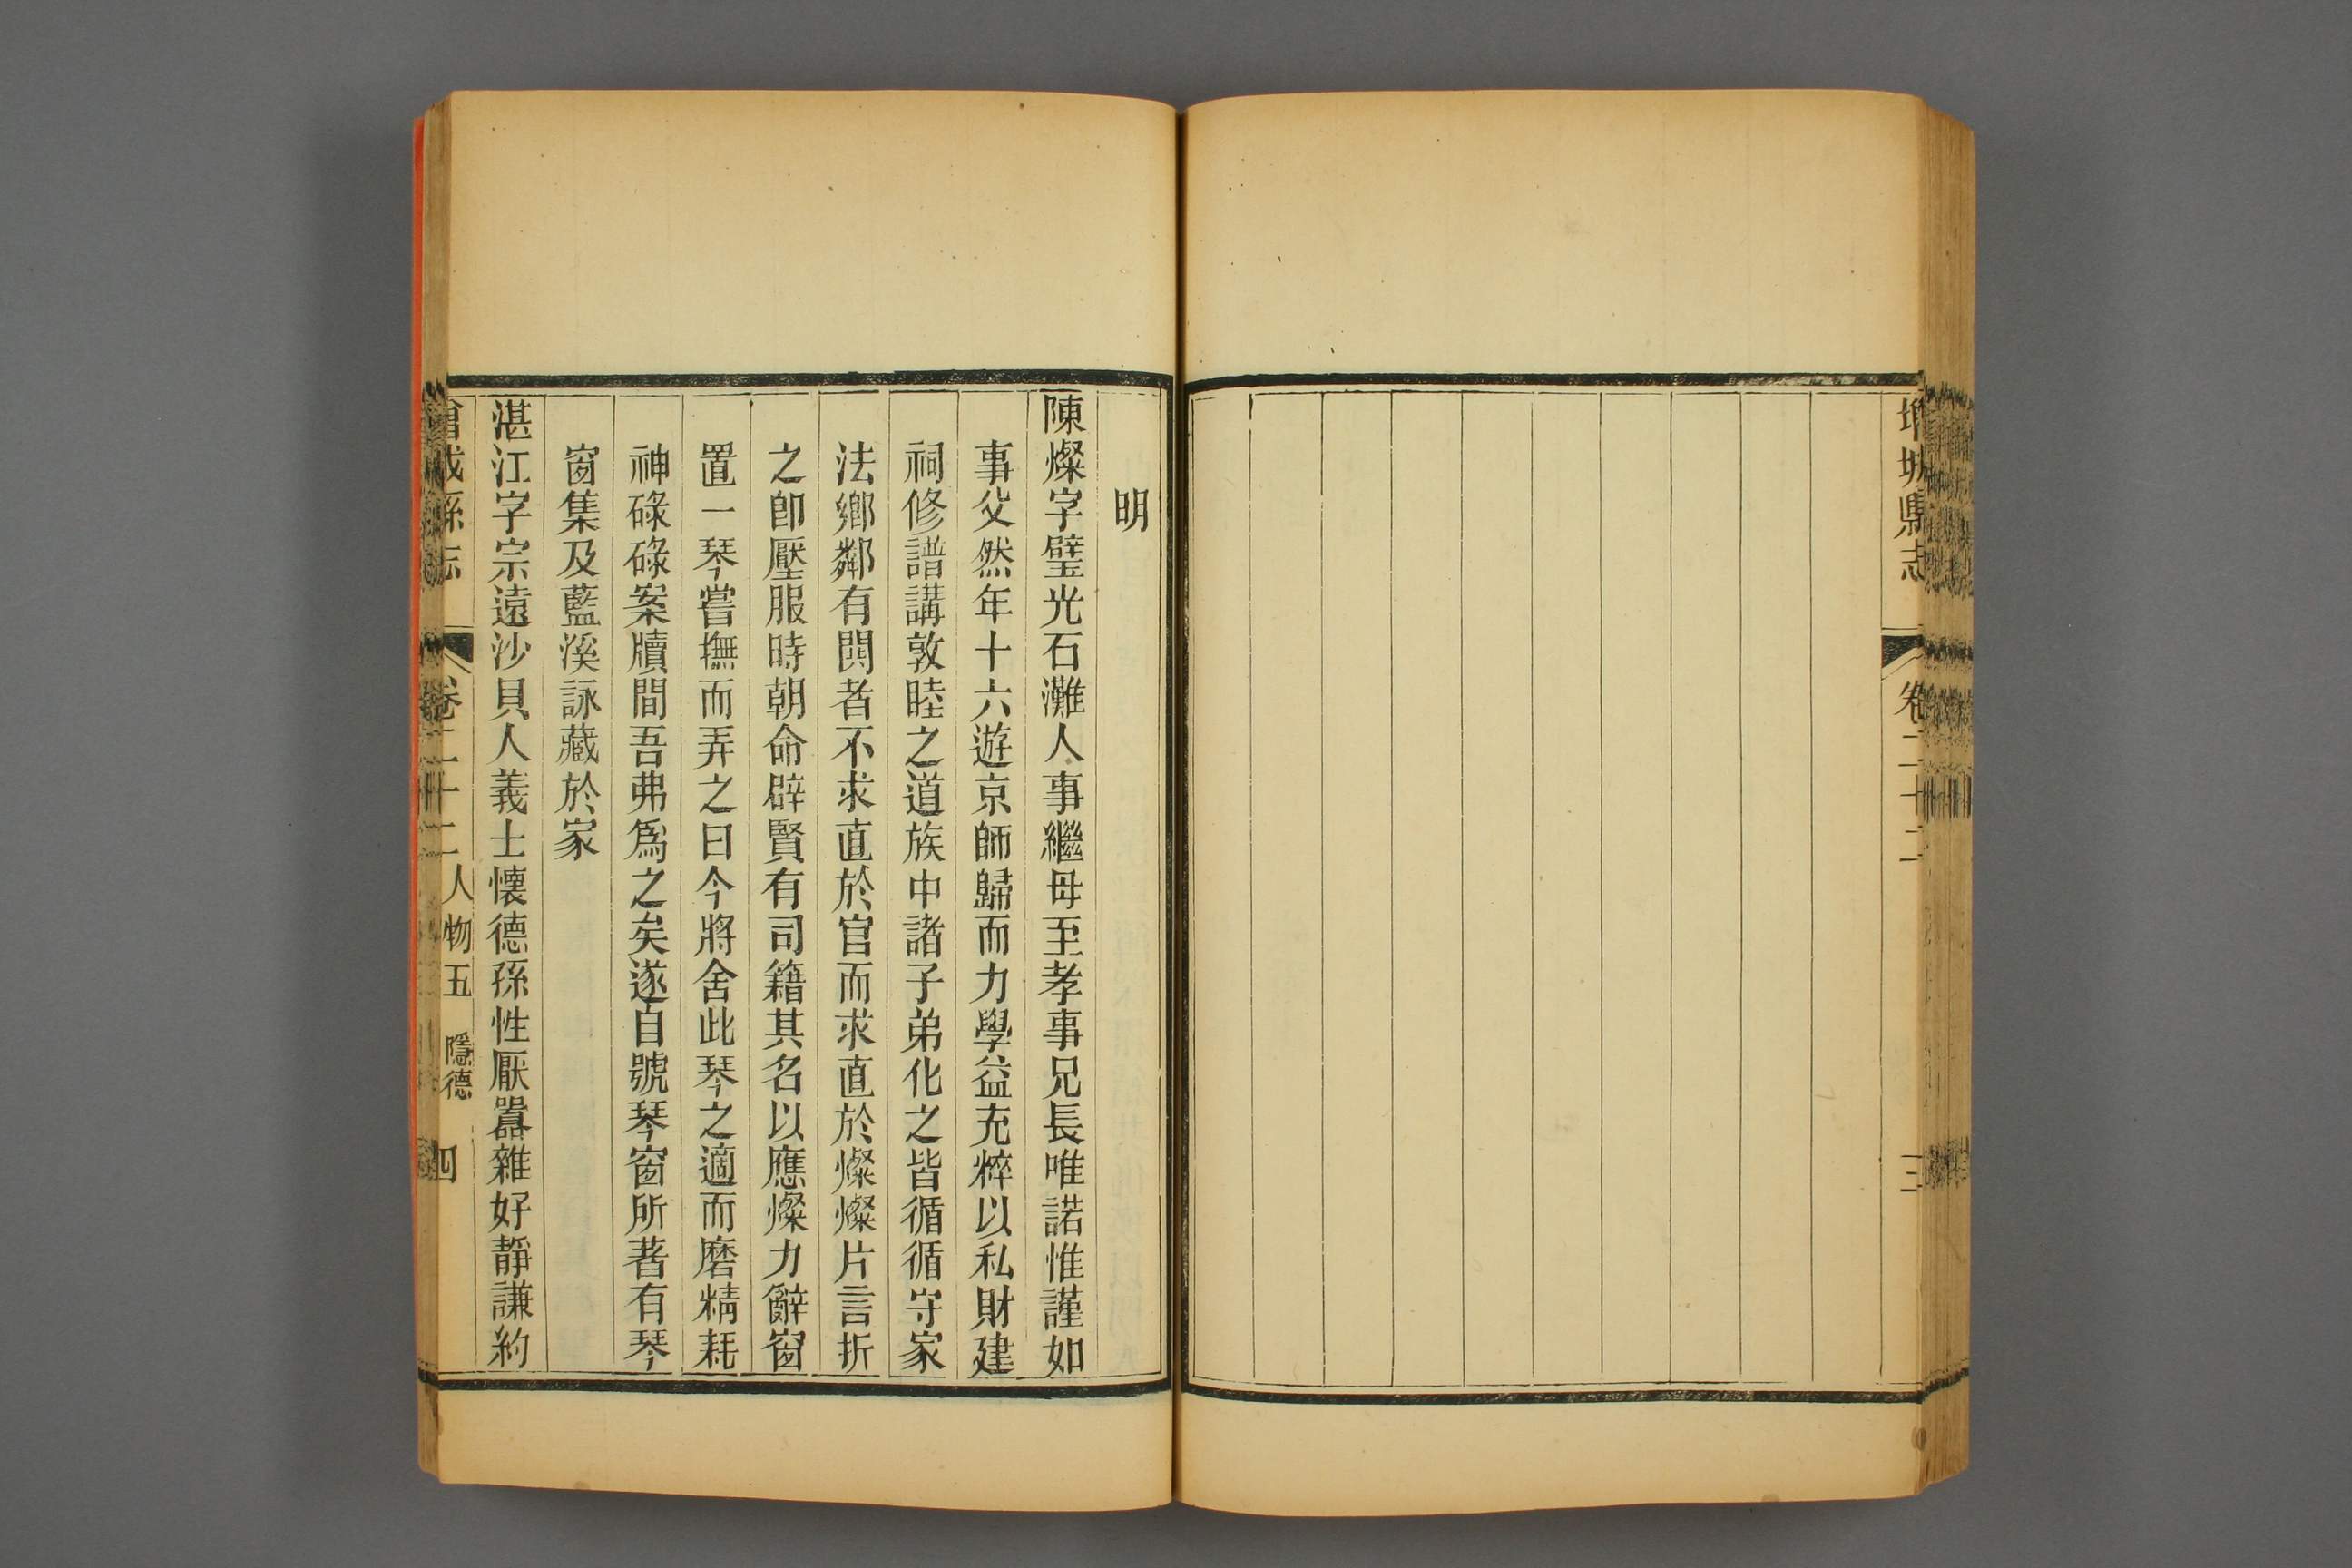 增城縣志
卷二十二
三
明
陳燦字璧光石灘人事繼母至孝事兄長唯諾惟謹如
事父然年十六遊京師歸而力學益充粹以私財建
祠修譜講敦睦之道族中諸子弟化之皆循循守家
法鄉鄰有鬩者不求直於官而求直於燦燦片言折
之卽壓服時朝命辟賢有司籍其名以應燦力辭窗
置一琴嘗撫而弄之曰今將舍此琴之適而磨精耗
神碌碌案牘間吾弗爲之矣遂自號琴窗所著有琴
窗集及藍溪詠藏於家
湛江字宗遠沙貝人義士懷德孫性厭囂雜好靜謙約
增城縣志
卷二十二
人物五
隱德
四